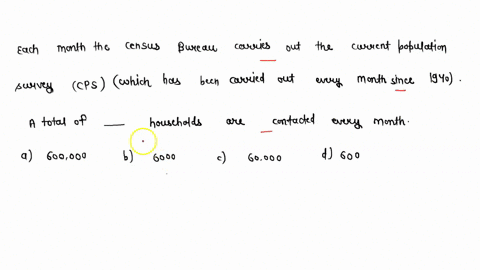 Each month the census Bureau carries out the current population
survey (CPS) (which has been carried out every month since 1940).
A total of ___ households are contacted every month.
a) 600,000 b) 6000 c) 60.000 d) 600